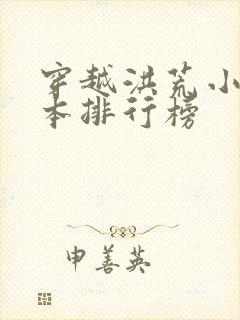 穿越洪荒小
本排行榜
申善英